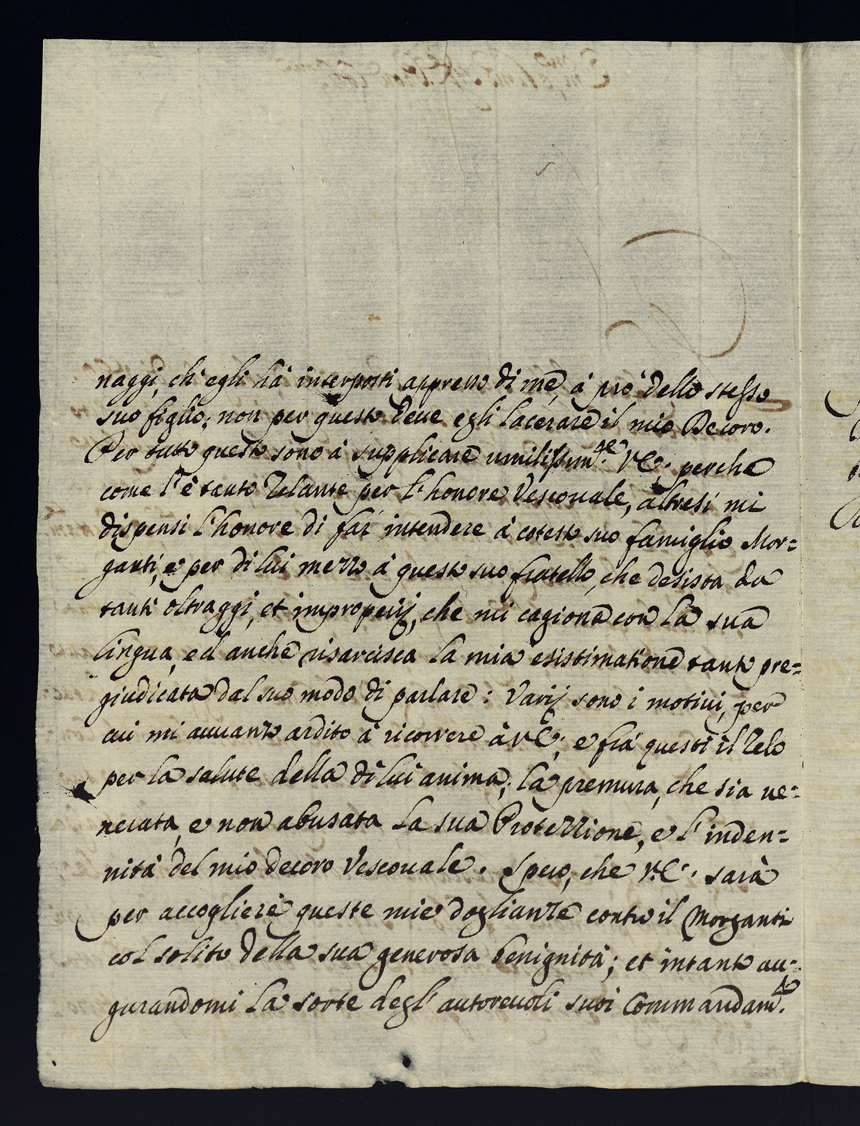 naggi, ch'egli hà interposti appresso di me, à prò dello stesso
suo figlio; non per questo deve egli lacerare il mio Decoro.
Per tutto questo sono à supplicare umilissim.te V.E. perche
come l'è tanto Zelante per l'honore Vescovale, altresì mi
dispensi l'honore di far intendere à cotesto suo famiglio Mor=
ganti, e per di lui mezzo à questo suo fratello, che desista da
tanti oltraggi, et improperij, che mi cagiona con la sua
lingua, ed anche risarcisca la mia esistimatione tanto pre=
giudicata dal suo modo di parlare: Varij sono i motivi, per
cui mi avvanzo ardito à ricorrere à V.E; e frà questi il Zelo
per la salute della di lui anima, la premura, che sia ve=
nerata, e non abusata la sua Protezzione, e l'inden=
nità del mio decoro Vescovale. Spero, che V.E. sarà
per accogliere queste mie doglianze contro il Morganti
col solito della sua generosa benignità; et intanto au=
gurandomi la sorte degl'autorevoli suoi Commandam.ti